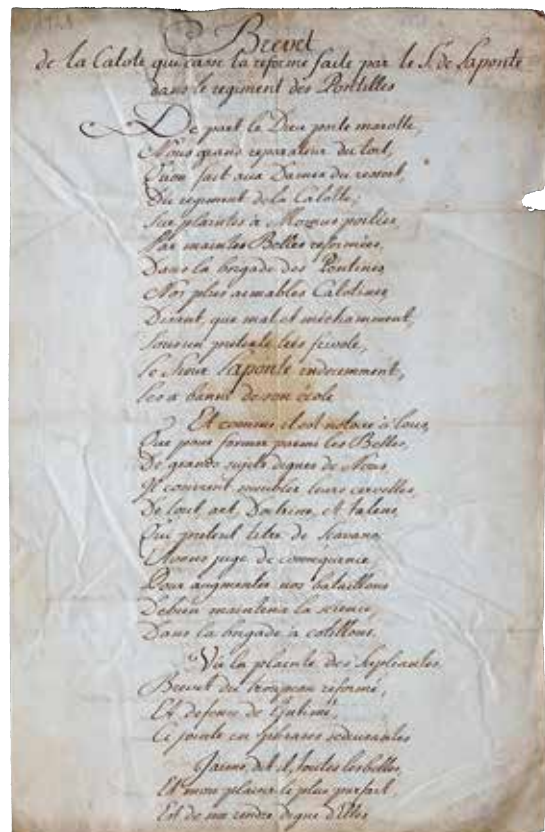 Brevet
de la Calote qui casse la reforme faite par le Sr. de Laponte
dans le regiment des Pontilles
De part le Dieu porte marotte,
Nous grand reparateur du tort,
Qu'on fait aux Dames du ressort,
Du regiment de la Calotte,
Sur plaintes à Momus portées,
Par maintes Belles reformées,
Dans la brigade des Pontines,
Nos plus aimables Calotines
Disant, que mal et méchamment,
Sous un pretexte très frivole,
Le Sieur Laponte indecemment,
les a banni de son école
Et comme il est notoire à tous,
Que pour former parmi les Belles,
De grands sujets dignes de Nous
Il convient meubler leurs cervelles,
De tout art Doctrine, et talens,
Qui pretent titre de Scavans,
Avons jugé de consequence,
Pour augmenter nos bataillons
De bien maintenir la science,
Dans la brigade à cotillons,
Vu la plainte des Supliantes
Brevet du troupeau reformé,
Et defense de
Ce jointe en phrases
J'aime, dit-il, toutes les belles,
Et mon plaisir le plus parfait,
Est de me rendre digne d'Elles